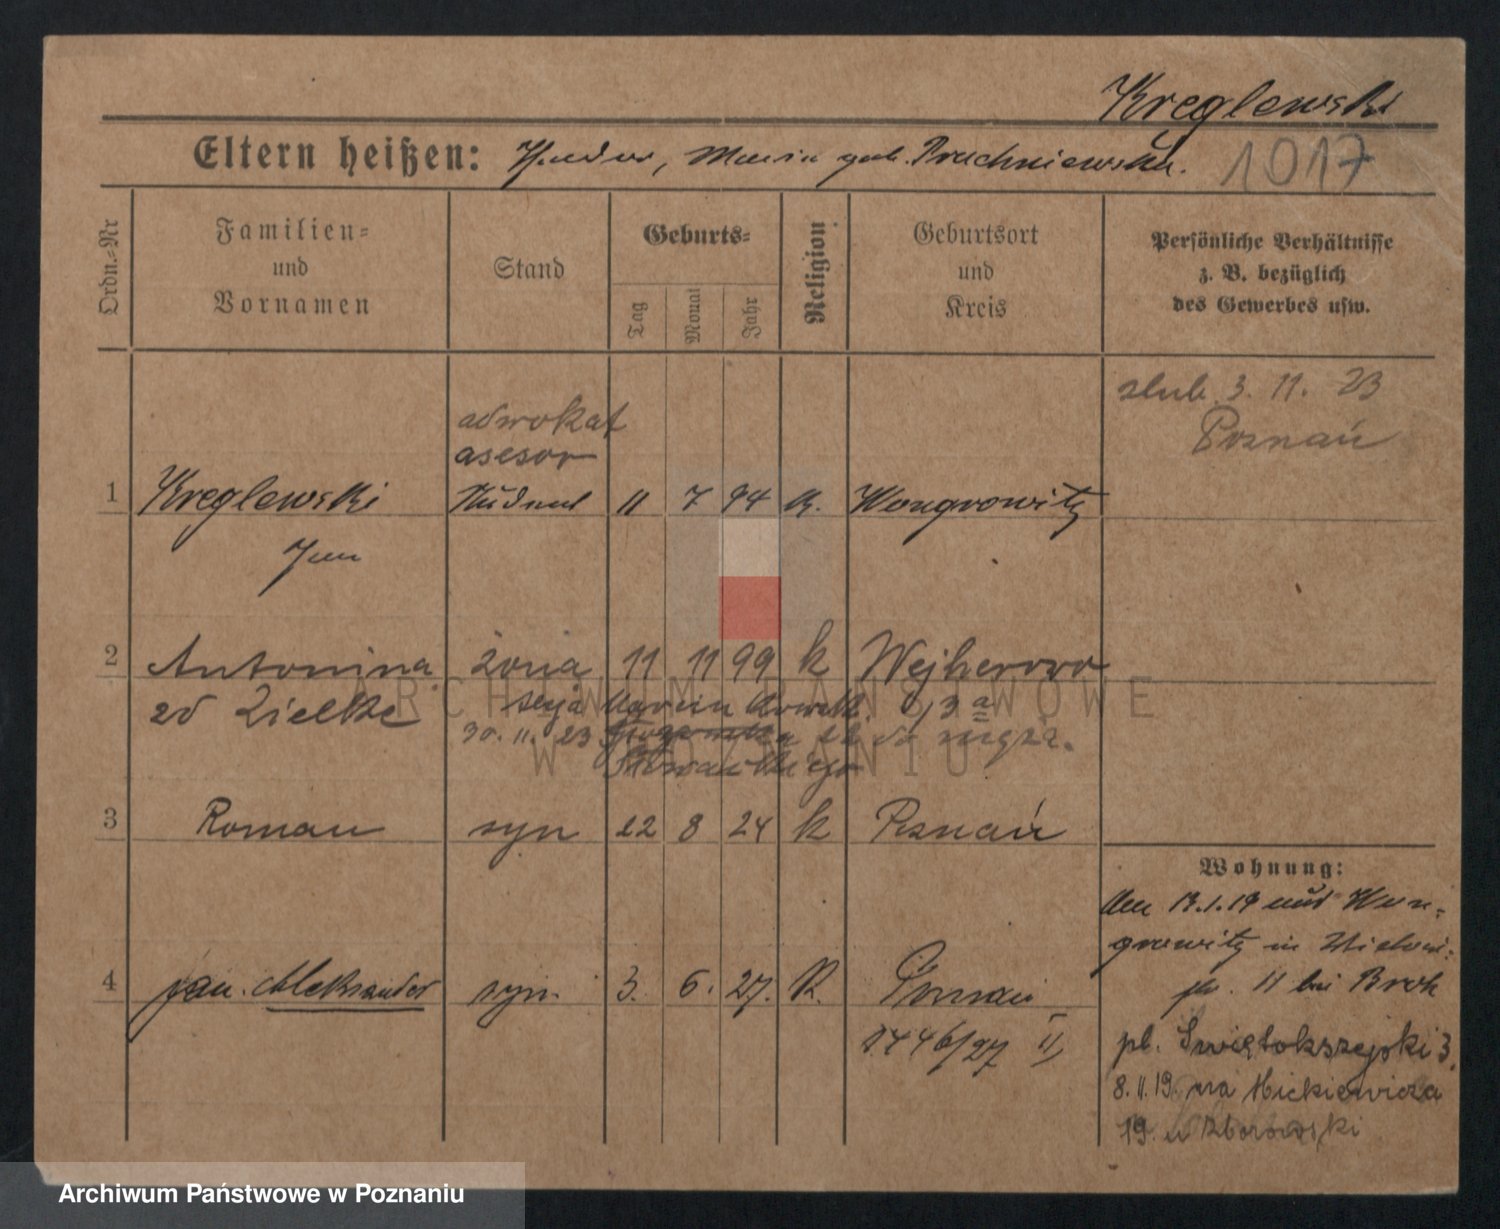 Kreglewski
Eltern heißen: Maria geb. Pruchniewska.
1017
Ordn.-Nr
Familien-
und
Vornamen
Stand
Geburts-
Tag
Monat
Jahr
Religion
Geburtsort
und
Kreis
Persönliche Verhältnisse
z. B. bezüglich
des Gewerbes usw.
ślub 3. 11. 23
Poznań
adwokat
asesor
1 Kreglewski Student 11 7 94 K. Wongrowitz
Jan
2 Antonina żona 11 11 99 k Wejherowo
zd Zielke
30. 11. 23
3 Roman syn 22 8 24 k Poznań
Wohnung:
Am 13.1.19 aus Won-
growitz in
4 Jan. Aleksander syn. 3. 6. 27. K. Poznań
p. 11 bei
1446/27 II
pl. Świętokrzyski 3.
8. 11. 19. na Mickiewicza
19. u Zborowski
ARCHIWUM PAŃSTWOWE
W POZNANIU
Archiwum Państwowe w Poznaniu